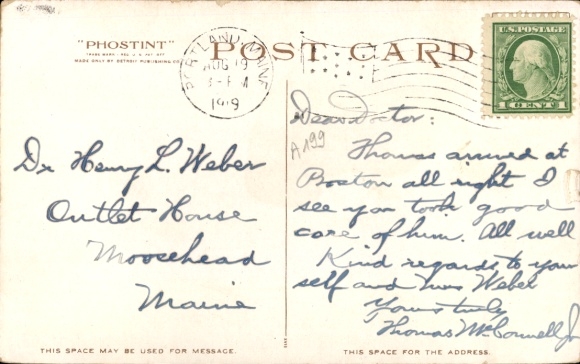 "PHOSTINT"
MADE ONLY BY DETROIT PUBLISHING CO.
POST CARD
PORTLAND, MAINE
AUG 19
PM
1919
U.S. POSTAGE
1 CENT 1
Dear Doctor:
A199
Thomas arrived at
Boston all right I
see you took good
care of him. All well
Kind regards to your
self and Mrs Weber
Yours truly
Thomas McConnell Jr
Dr Henry L. Weber
Outlet House
Moosehead
Maine
THIS SPACE MAY BE USED FOR MESSAGE.
THIS SPACE FOR THE ADDRESS.